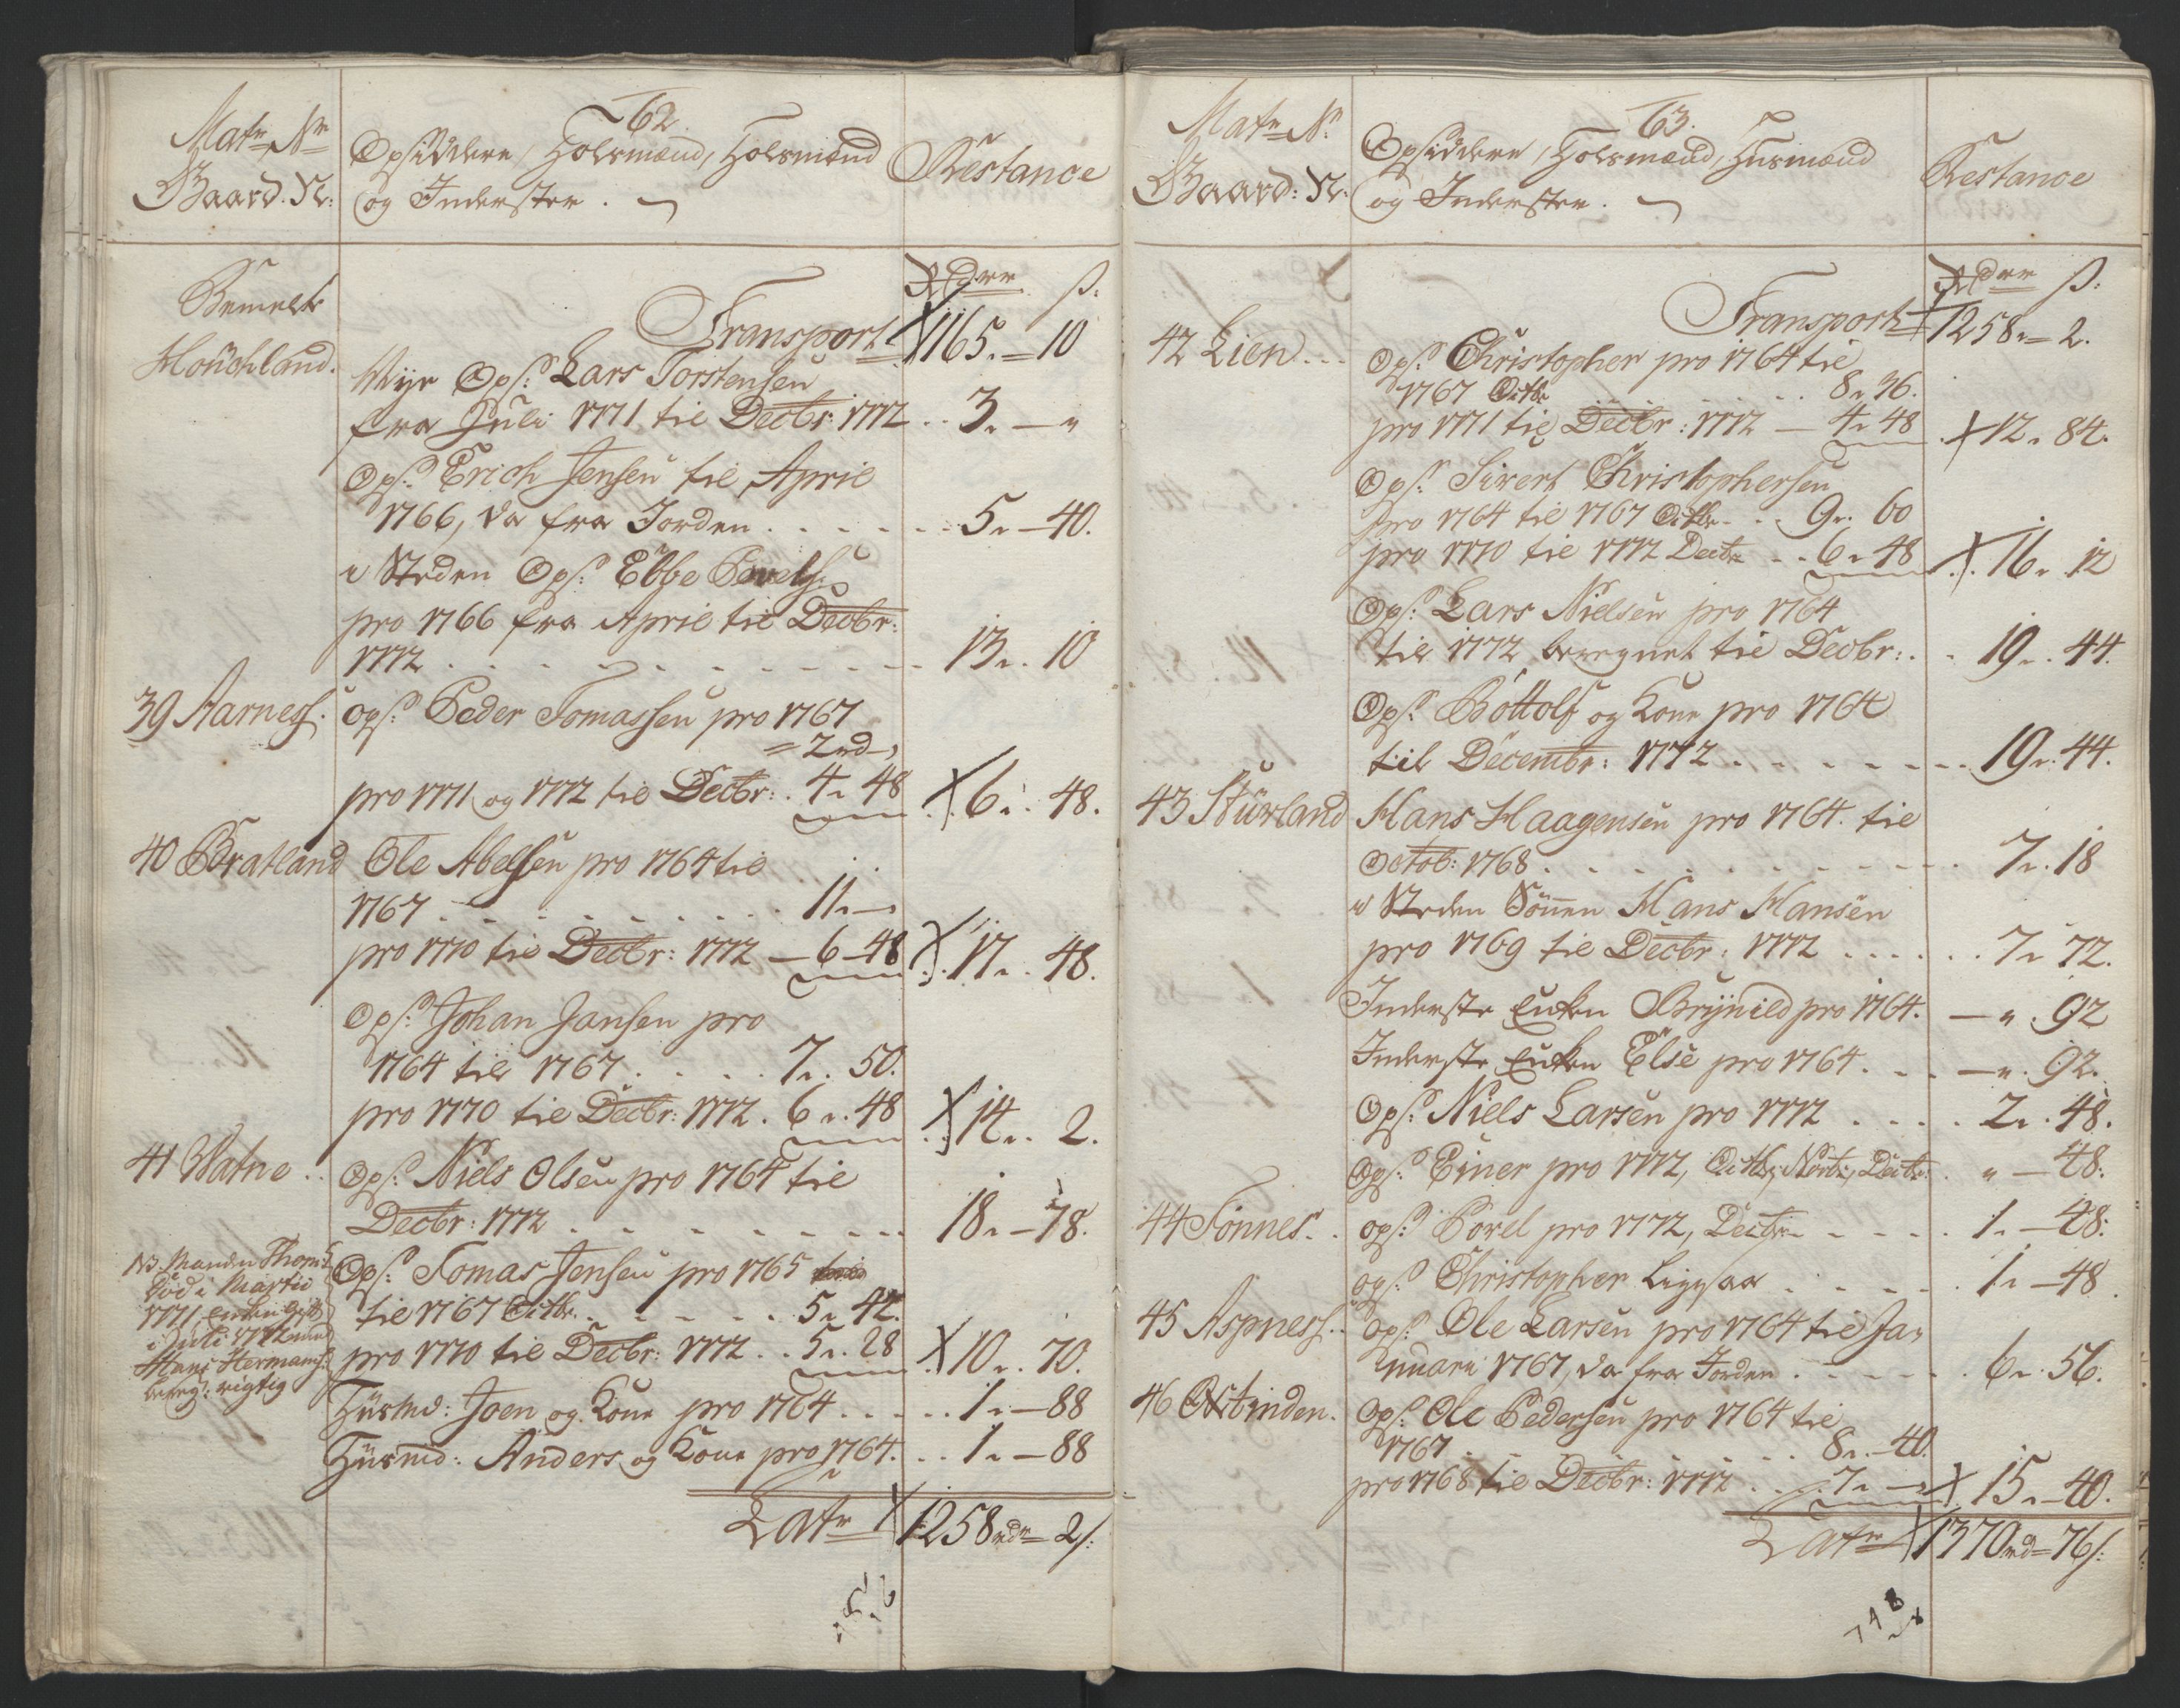 62.
Matr: Nr
Gaard: N:
Opsiddere, Holsmænd, Holsmænd
og Inderster.
Restance
Rdrr ß:
Bemelte
Houchland.
Transport 1165. 10
Nye Ops: Lars Torstensen
fra Juli 1771 til Decbr: 1772 .. 3. — "
Ops: Erich Jensen til April
1766, da fra Jorden . . . . . 5. — 40.
i Steden Ops: Ebbe Povels:
pro 1766 fra April til Decbr:
1772 . . . . . . . . 13. . 10
39 Aarness. Ops: Peder Tomassen pro 1767
= 2rd „
pro 1771 og 1772 til Decbr: . 4. 48 6. . 48.
40 Bratland Ole Abelsen pro 1764 til
1767 . . . . . . . 11. —
pro 1770 til Decbr: 1772 — 6 — 48 17. . 48.
Ops: Johan Jansen pro
1764 til 1767 . . . . 7. . 50.
pro 1770 til Decbr: 1772 . 6. . 48 14. . 2.
41 Watne . . Ops: Niels Olsen pro 1764 til
Decbr: 1772 . . . . . . . 18. — 78.
NB. Manden Thom:
Död i Martii
1771, Enken Gift
i Juli 1772 med
Hans Hermans:
bereg: rigtig
Ops: Tomas Jensen pro 1765
til 1767 Octbr. . . . . . 5. 42.
pro 1770 til Decbr: 1772 . . 5. . 28 10. . 70.
Husmd: Joen og Kone pro 1764 . . . . 1. — 88
Husmd: Anders og Kone pro 1764. . . 1. — 88
Latr 1258 rdr 2ß:
63.
Matr: Nr
Gaard: N:
Opsiddere, Holsmænd, Husmænd
og Inderster.
Restance
Rdrr ß:
Transport 1258. — 2.
42 Lien . . . Ops: Christopher pro 1764 til
1767 Octbr . . . . . 8. 36.
pro 1771 til Decbr: 1772 — 4. 48 12. 84.
Ops: Sivert Christophersen
pro 1764 til 1767 Octbr . . 9. 60
pro 1770 til 1772 Decbr . . 6. 48 16. 12
Ops: Lars Nielsen pro 1764
til 1772 beregnet til Decbr: . . 19. . 44.
Ops: Bottolf og Kone pro 1764
til Decembr: 1772 . . . . . . . 19. . 44.
43 Sturland Hans Haagensen pro 1764. til
Octob: 1768 . . . . . . . . . 7. . 18
i Steden Sönnen Hans Hansen
pro 1769 til Decbr: 1772 . . . . . . 7. 72.
Inderste Enken Brynild pro 1764. — ". 92
Inderste Enken Else pro 1764 . . . — ". 92.
Ops: Niels Larsen pro 1772 . . . . . 2. . 48.
Ops: Einer pro 1772, Octbr, Novbr, Decbr . " — 48.
44 Tonnes . . Ops: Povel pro 1772, Decbr . . . . . 1. — 48.
Ops: Christopher Liggaa . . . . . 1. — 48.
45 Aspness . . Ops: Ole Larsen pro 1764 til Ja,
nuari 1767, da fra Jorden . . . . . 6. . 56.
46 Ostvinden. Ops: Ole Pedersen pro 1764 til
1767 . . . . . . . 8. — 40.
pro 1768 til Decbr: 1772 . . . 7. — 15. — 40.
Latr 1370 rdr 76ß: